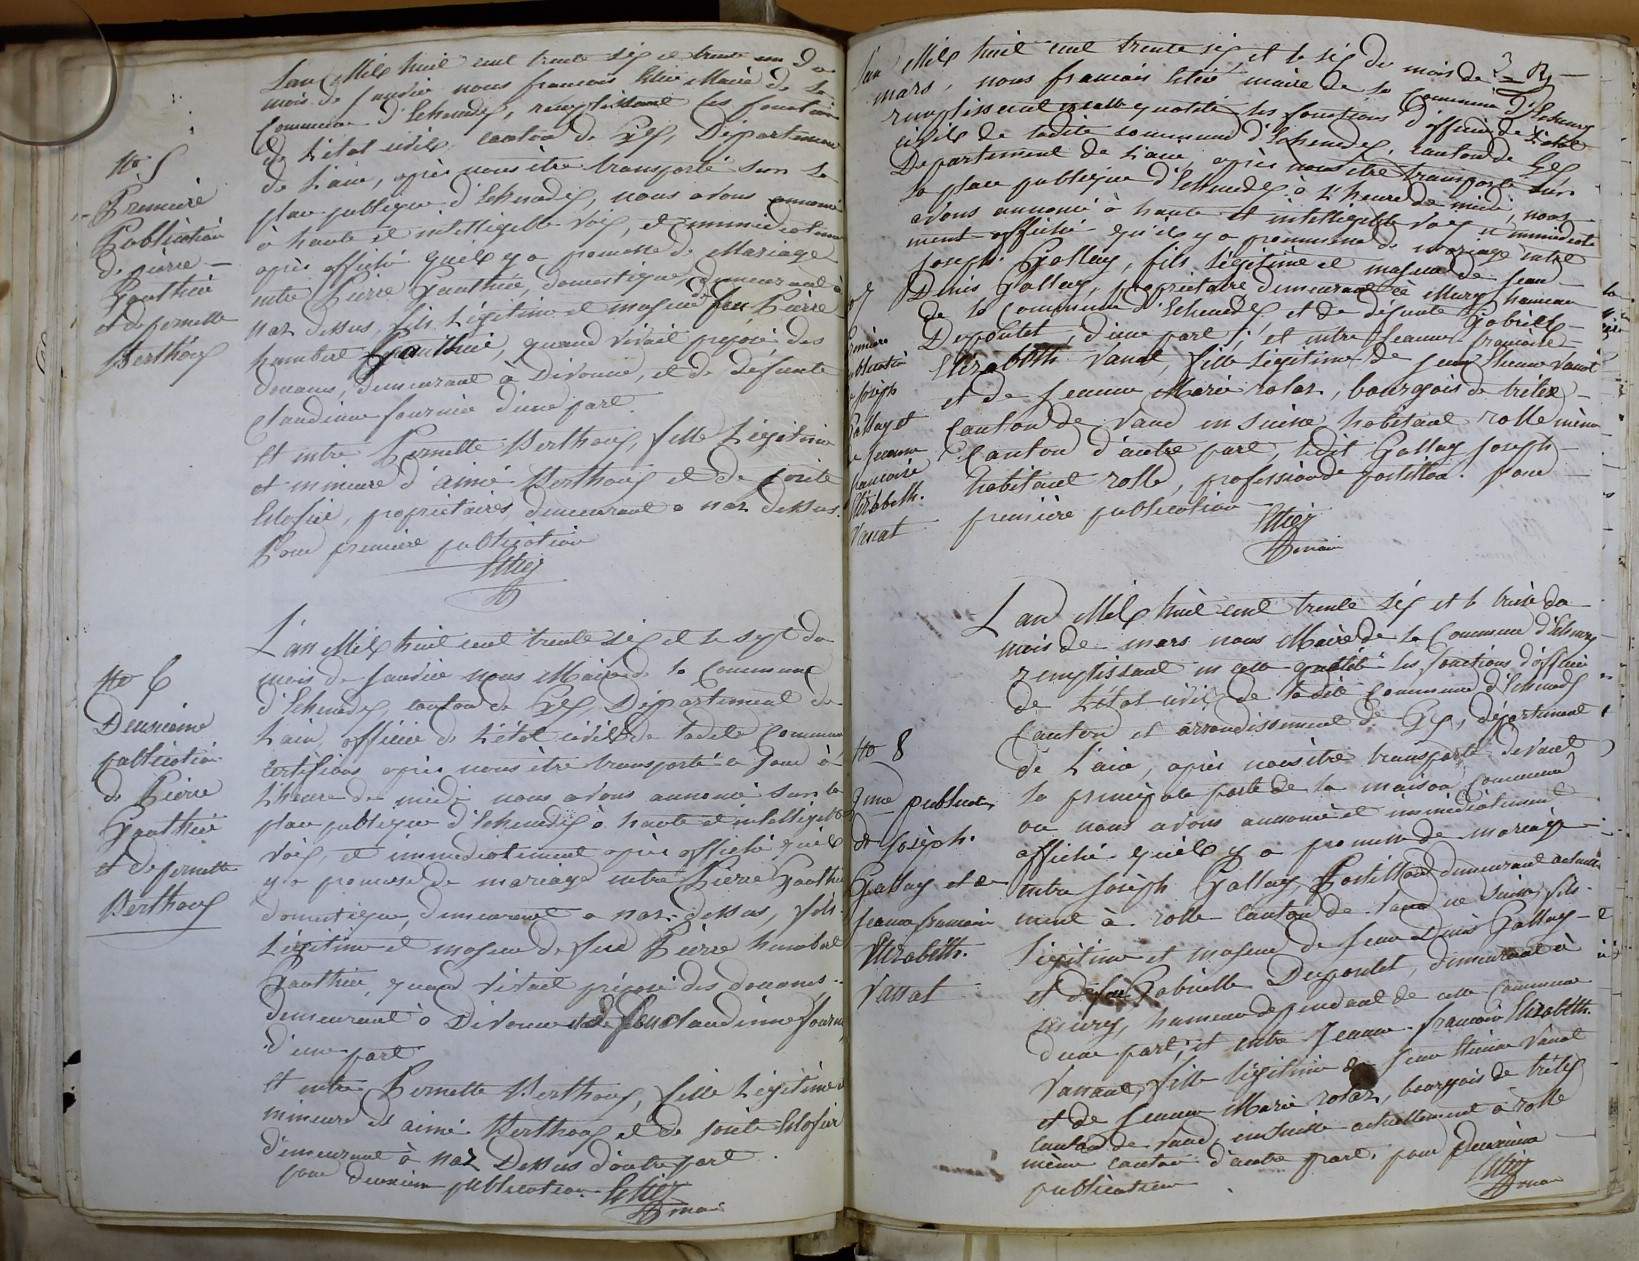 No 5
Premiere
Publication
de pierre
Gauthier
et de pernette
Berthoux
L'an Mil huit cent trente six et trente un du
mois de janvier nous francois Maire de la
Commune d'Echenevex, remplissant les fonctions
de L'etat civil, canton de Gex, Département
de L'ain, après nous être transporté sur la
place publique d'Echenevex, nous avons annoncé
à haute et intelligible voix, et immédiatement
après affiché quil y a promesse de Mariage
entre Pierre Gauthier, domestique, demeurant à
naz dessus, fils Légitime et majeur de feu Pierre
humbert Gauthier, quand vivait préposé des
douanes, demeurant à Divonne, et de défunte
claudine fournier d'une part.
Et entre Pernette Berthoux, fille Légitime
et mineure d'aimé Berthoux et de josite
, propriétaires, demeurant a naz dessus.
Pour première publication
No 6
Deuxieme
publication
de Pierre
Gauthier
et de pernette
Berthoux
L'an Mil huit cent trente six et le sept du
mois de janvier nous Maire de la Commune
d'Echenevex, canton de Gex, Département de
L'ain officier de L'état civil de ladite Commune
Certifions après nous être transporté a jour à
L'heure de midi nous avons annoncé sur la
place publique d'Echenevex à haute et intelligible
voix, et immediatement après affiché quil
y a promesse de mariage entre Pierre Gauthier
domestique, demeurant a naz-dessus, fils
Légitime et majeur de feu Pierre humbert
Gauthier, quand vivait préposé des douanes
demeurant à Divonne et de feu claudinne fournier
d'une part
Et entre Pernette Berthoux, fille Légitime
mineure de aimé Berthoux et de josite
demeurant à naz Dessus d'autre part
pour deuxième publication.
maire
7
première
publication
de joseph
Gallay et
de jeanne
francoise
Elizabeth.
Vanat
L'an Mil huit cent trente six, et le six du mois de
mars, nous francois maire de la Commune d'Echenevex
remplissant en cette qualité les fonctions d'officier de L'etat
civil de ladite commune d'Echenevex, canton de Gex
Département de L'ain, après nous être transporté sur
la place publique d'Echenevex à L'heure de midi, nous
avons annoncé à haute et intelligible voix et immédiate
ment affiché qu'il y a promesse de mariage entre
joseph Gallay, fils légitime et majeur de jean
Denis Gallay, propriétaire demeurant à Mury hameau
de la Commune d'Echenevex et de défunte Gabrielle
Depoulet, d'une part; et entre jeanne francoise
Elizabeth Vanat, fille Légitime de jean Etienne Vanat
et de jeanne Marie rolaz, bourgois de trelex
Canton de Vaud en suisse habitant rolle même
Canton d'autre part, ledit Gallay joseph
habitant rolle, profession de postillon. pour
première publication
maire
No 8
2me publicat
de joseph
Gallay et de
jeanne francoise
Elizabeth.
Vanat
L'an Mil huit cent trente six et le treize du
mois de mars nous Maire de la Commune d'Echenevex
remplissant en cette qualité les fonctions d'officier
de L'état civil de ladite Commune d'Echenevex
Canton et arrondissement de Gex, département
de L'ain, après nous être transporté devant
la principale porte de la maison Commune
ou nous avons annoncé et immédiatement
affiché qu'il y a promesse de mariage
entre joseph Gallay Postillon demeurant actuelle
ment à rolle Canton de Vaud en suisse, fils
légitime et majeur de jean Denis Gallay
et de feu Gabrielle Depoulet, demeurant à
mury, hameau dependant de cette Commune
d'une part, et entre jeanne francoise Elizabeth.
Vanat, fille légitime de jean Etienne Vanat
et de jeanne Marie rolaz, bourgois de trelex
Canton de Vaud en suisse actuellement à rolle
même canton d'autre part. pour deuxième
publication
maire